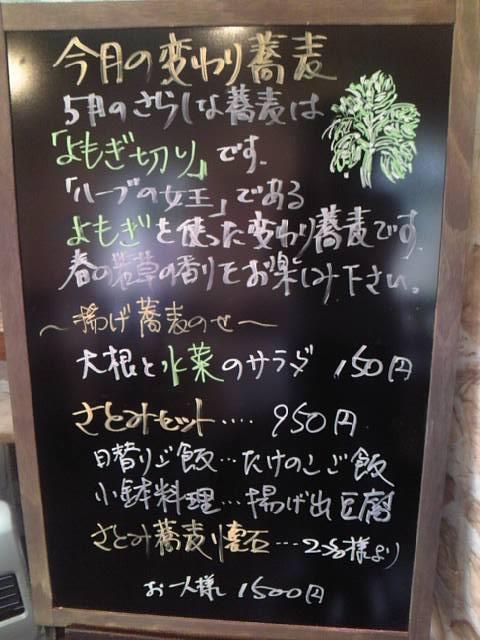 今月の変わり蕎麦
5月のさらしな蕎麦は
「よもぎ切り」です。
「ハーブの女王」である
よもぎを使った変わり蕎麦です。
春の若草の香りをお楽しみ下さい。
～揚げ蕎麦のせ～
大根と水菜のサラダ 150円
さとみセット‥‥ 950円
日替りご飯…たけのこご飯
小鉢料理…揚げ出豆腐
さとみ蕎麦懐石…2名様より
お一人様 1500円